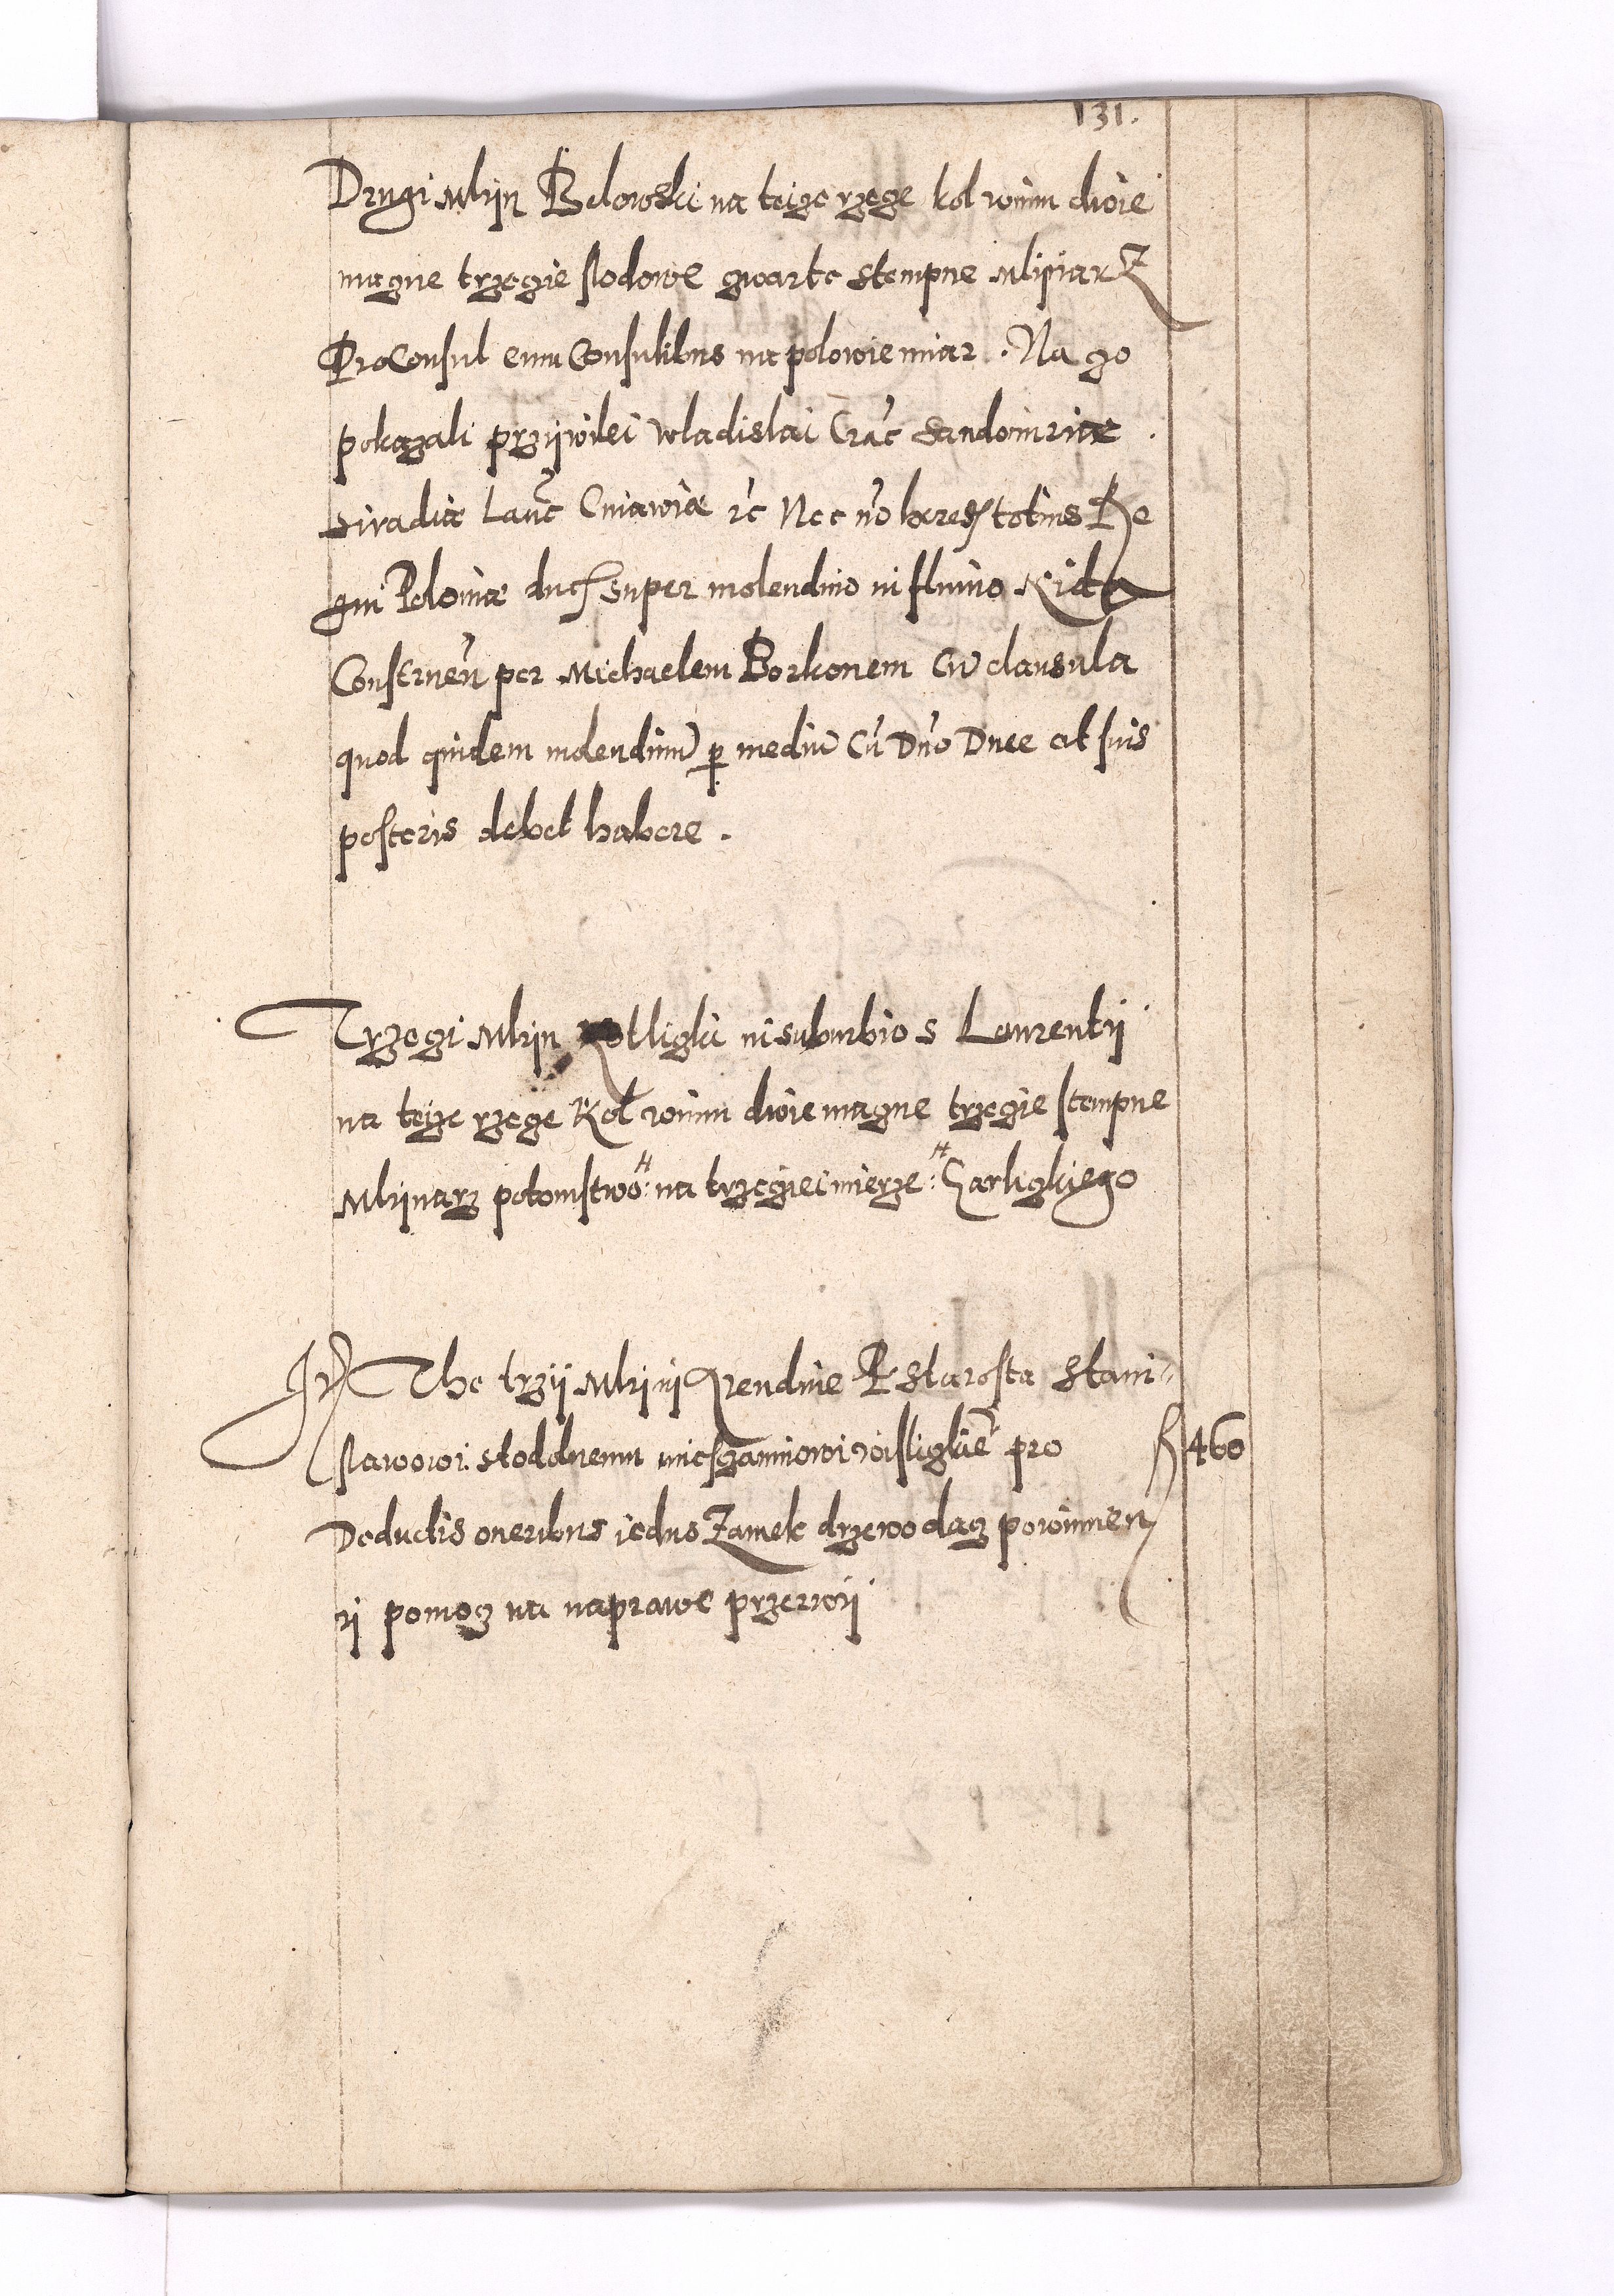 131.
Drugi Mlijn Belowski na teize rzece kol wninn dwie
mącne trzecie slodowe czwarte stempne Mlijnarz
ProConsul cum Consulibus na polowie miar. Na co
pokazali przijwilei wladislai Crac̄ Sandomiriae
Siradiae Lanc̄ Cuiawiae etc̄ Nec nō haeredis totius Re
gni Poloniae ducis super molendino in fluuio Nida
Construen̄ per Michaelem Borkonem Cū clausula
quod quidem molendinū per mediū Cū Dn̄o Duce et suis
posteris debet habere.
Trzeci Mlijn in suburbio S Laurentij
na teijze rzece Kol wninn dwie mącne trzecie stempne
Mlijnarz potomstwo: na trzeciei mierze: Carlickiego
It The trzij Mlijni Arendnie P Starosta Stani=
slawowi miesczaninowi wislickie pro fl 460
Deductis oneribus iedno Zamek drzewo dacz powinnen
ij pomocz na naprawe przerwij